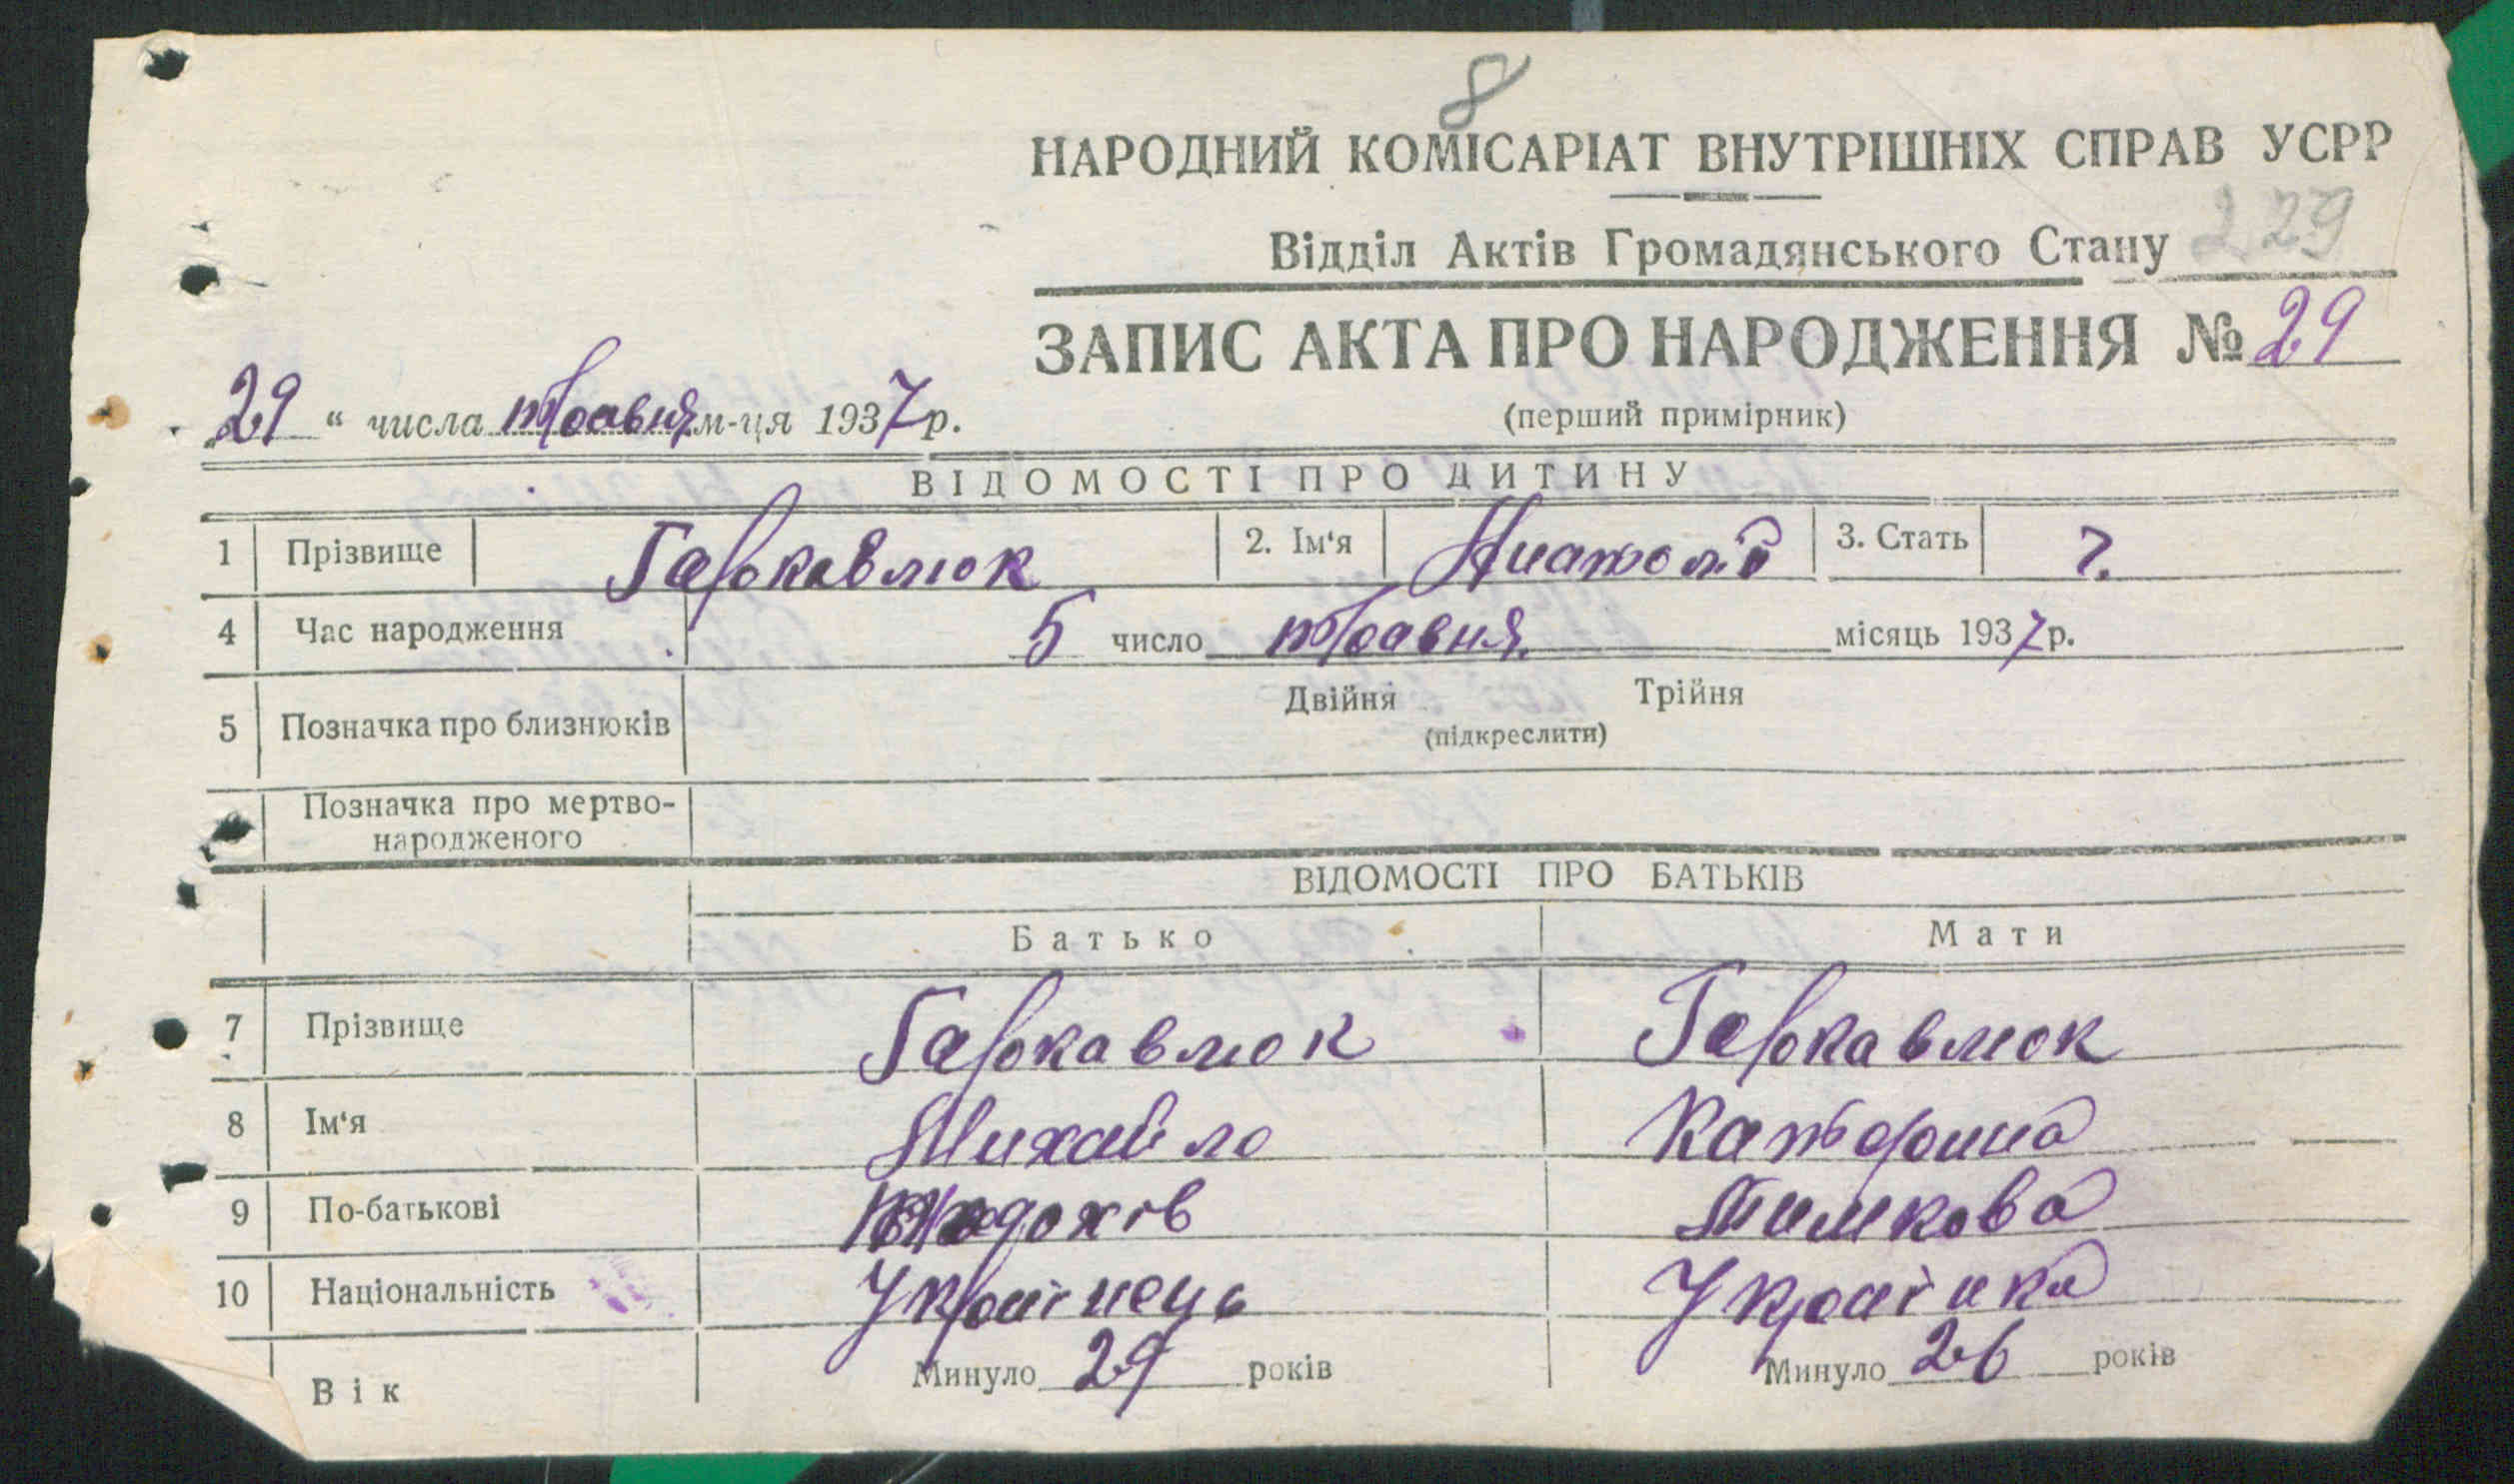 8
НАРОДНИЙ КОМІСАРІАТ ВНУТРІШНІХ СПРАВ УСРР
Відділ Актів Громадянського Стану 229
ЗАПИС АКТА ПРО НАРОДЖЕННЯ № 29
„29“ числа травня м-ця 1937 р.
(перший примірник)
ВІДОМОСТІ ПРО ДИТИНУ
1 Прізвище Гаркавлюк 2. Ім'я Анатолій 3. Стать ч.
4 Час народження 5 число травня місяць 1937 р.
5 Позначка про близнюків Двійня Трійня
(підкреслити)
Позначка про мертво-
народженого
ВІДОМОСТІ ПРО БАТЬКІВ
Батько Мати
7 Прізвище Гаркавлюк Гаркавлюк
8 Ім'я Михайло Катерина
9 По-батькові Тимкова
10 Національність Українець Українка
Вік Минуло 29 років Минуло 26 років